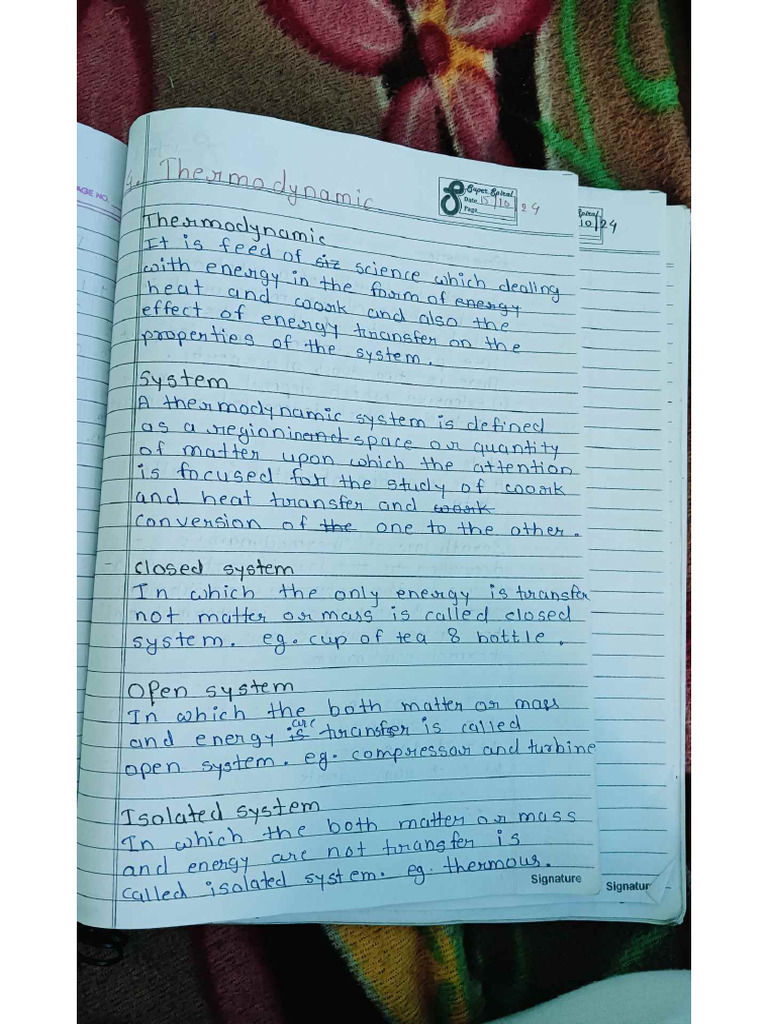 4. Thermodynamic
Super Spiral
Date 15/10/24
Page
Thermodynamic
It is feed of siz science which dealing
with energy in the form of energy
heat and work and also the
effect of energy transfer on the
properties of the system.
System
A thermodynamic system is defined
as a region in and space or quantity
of matter upon which the attention
is focused for the study of work
and heat transfer and work
conversion of the one to the other.
closed system
In which the only energy is transfer
not matter or mass is called closed
system. eg. cup of tea & bottle.
Open system
In which the both matter or mass
and energy is are transfer is called
open system. eg. compressor and turbine
Isolated system
In which the both matter or mass
and energy are not transfer is
called isolated system. eg. thermous.
Signature
AGE NO.
piral
10/24
Signatur